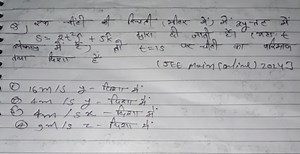 Q, एक चींटी की स्थिति (मीटर में) में xy-तल में
S = 2t²ĵ + 5k̂ द्वारा दी जाती है। (जहाँ t
सेकण्ड में है), तो t=1s पर चींटी का परिमाण
तथा दिशा है
[JEE Main (Online) 2024]
① 16m/s y- दिशा में
② 4m/s y- दिशा में
③ 4m/s x- दिशा में
④ 9m/s x- दिशा में